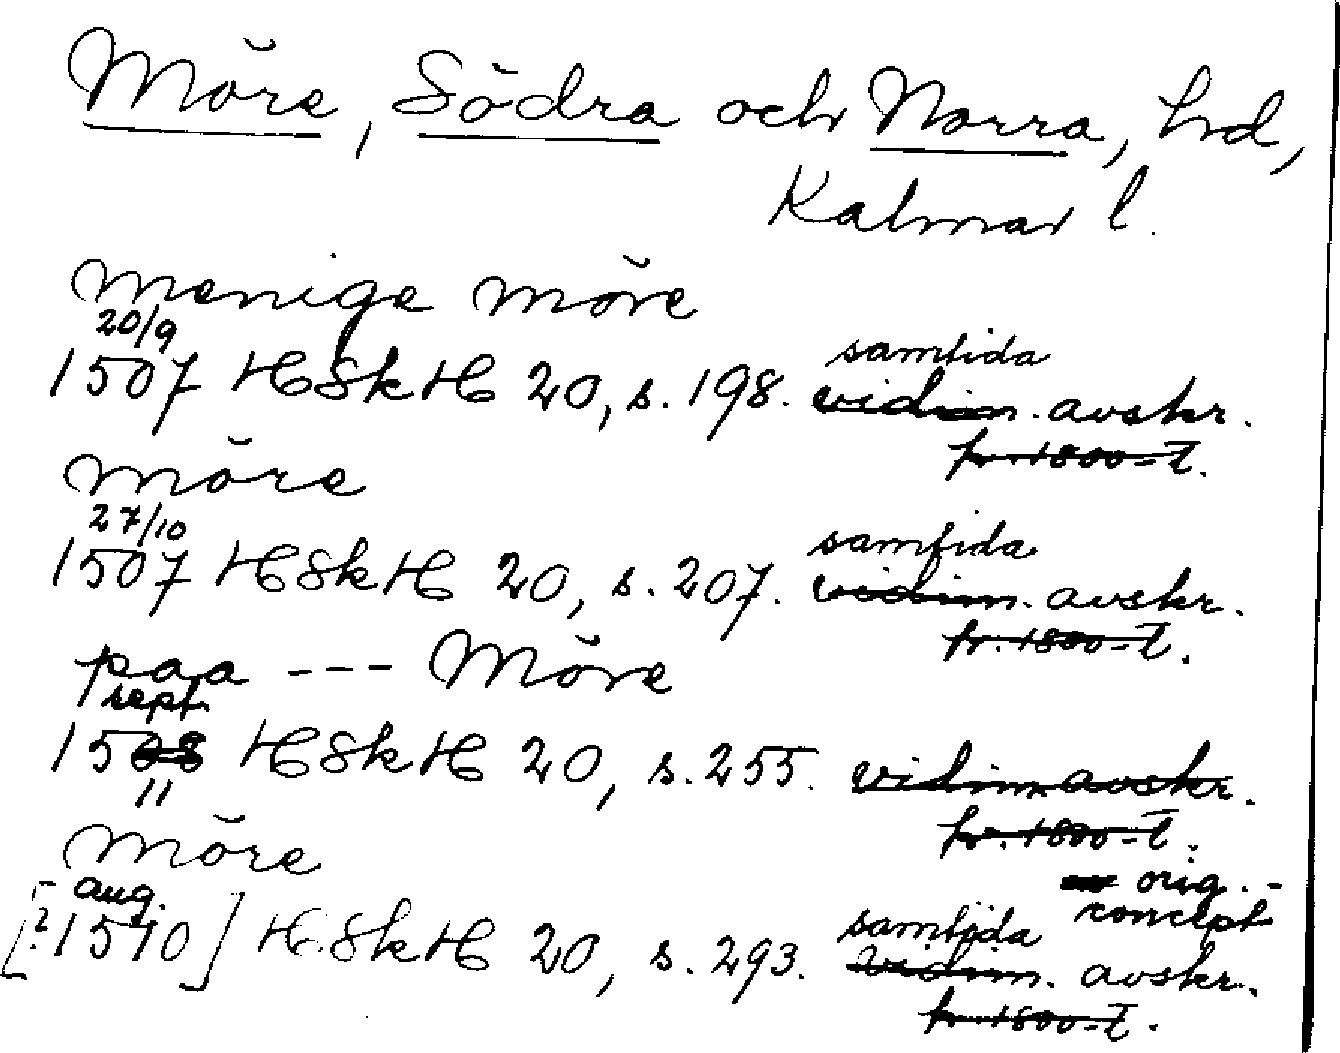 Möre, Södra och Norra, hd,
Kalmar l.
menige möre
20/9
samtida
1507 HSkH 20, s. 198. vidim. avskr.
fr. 1800-t.
möre
27/10
samtida
1507 HSkH 20, s. 207. vidim. avskr.
fr. 1800-t.
paa --- Möre
sept.
1508 HSkH 20, s. 255. vidim avskr.
11
fr. 1800-t.
möre
orig.-
concept
aug.
samtida
[? 1510] HSkH 20, s. 293. vidim. avskr.
fr. 1800-t.